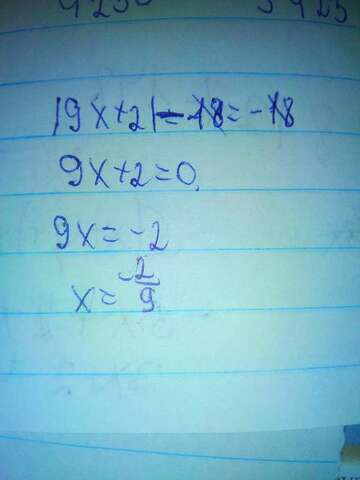 |9x+2|-18=-18
9x+2=0
9x=-2
x=-2/9